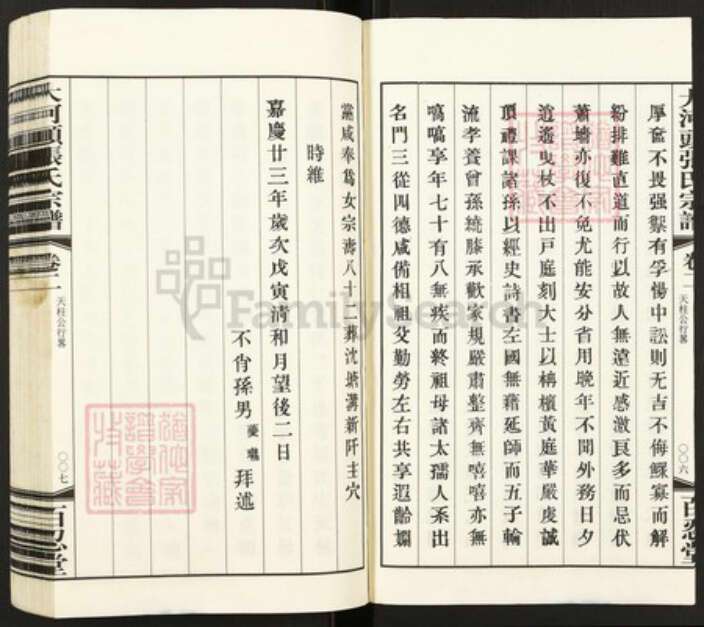 大河頭張氏宗譜
卷二
天柱公行畧
〇〇六
百忍堂
厚奩不畏强禦有孚惕中訟則无吉不侮鰥寡而解
紛排難直道而行以故人無遠近感激良多而忌伏
蕭墻亦復不免尤能安分省用晚年不聞外務日夕
逍遙曳杖不出戶庭刻大士以栴檀黃庭華嚴虔誠
頂禮課諸孫以經史詩書左國無藉延師而五子輪
流孝養曾孫繞膝承歡家規嚴肅整齊無嘻嘻亦無
嗃嗃享年七十有八無疾而終祖母諸太孺人系出
名門三從四德咸備相祖父勤勞左右共享遐齡嫺
黨咸奉爲女宗壽八十二葬沈塘溝新阡主穴
時維
嘉慶廿三年歲次戊寅清和月望後二日
不肖孫男 拜述
大河頭張氏宗譜
卷二
天柱公行畧
〇〇七
百忍堂
FamilySearch